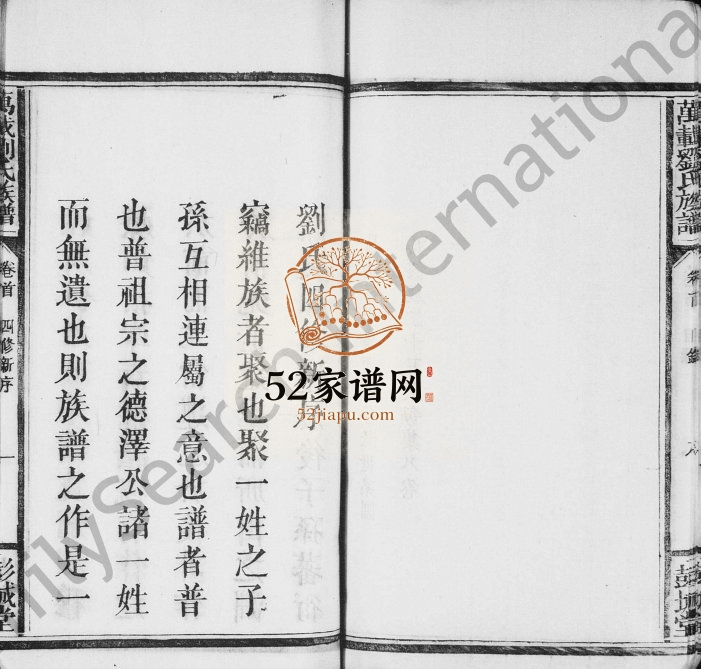 萬載劉氏族譜
卷首
目錄
彭城堂
劉氏四修新序
竊維族者聚也聚一姓之子
孫互相連屬之意也譜者普
也普祖宗之德澤公諸一姓
而無遺也則族譜之作是一
萬載劉氏族譜
卷首 四修新序
一
彭城堂
52家谱网
52jiapu.com
ilySearch International